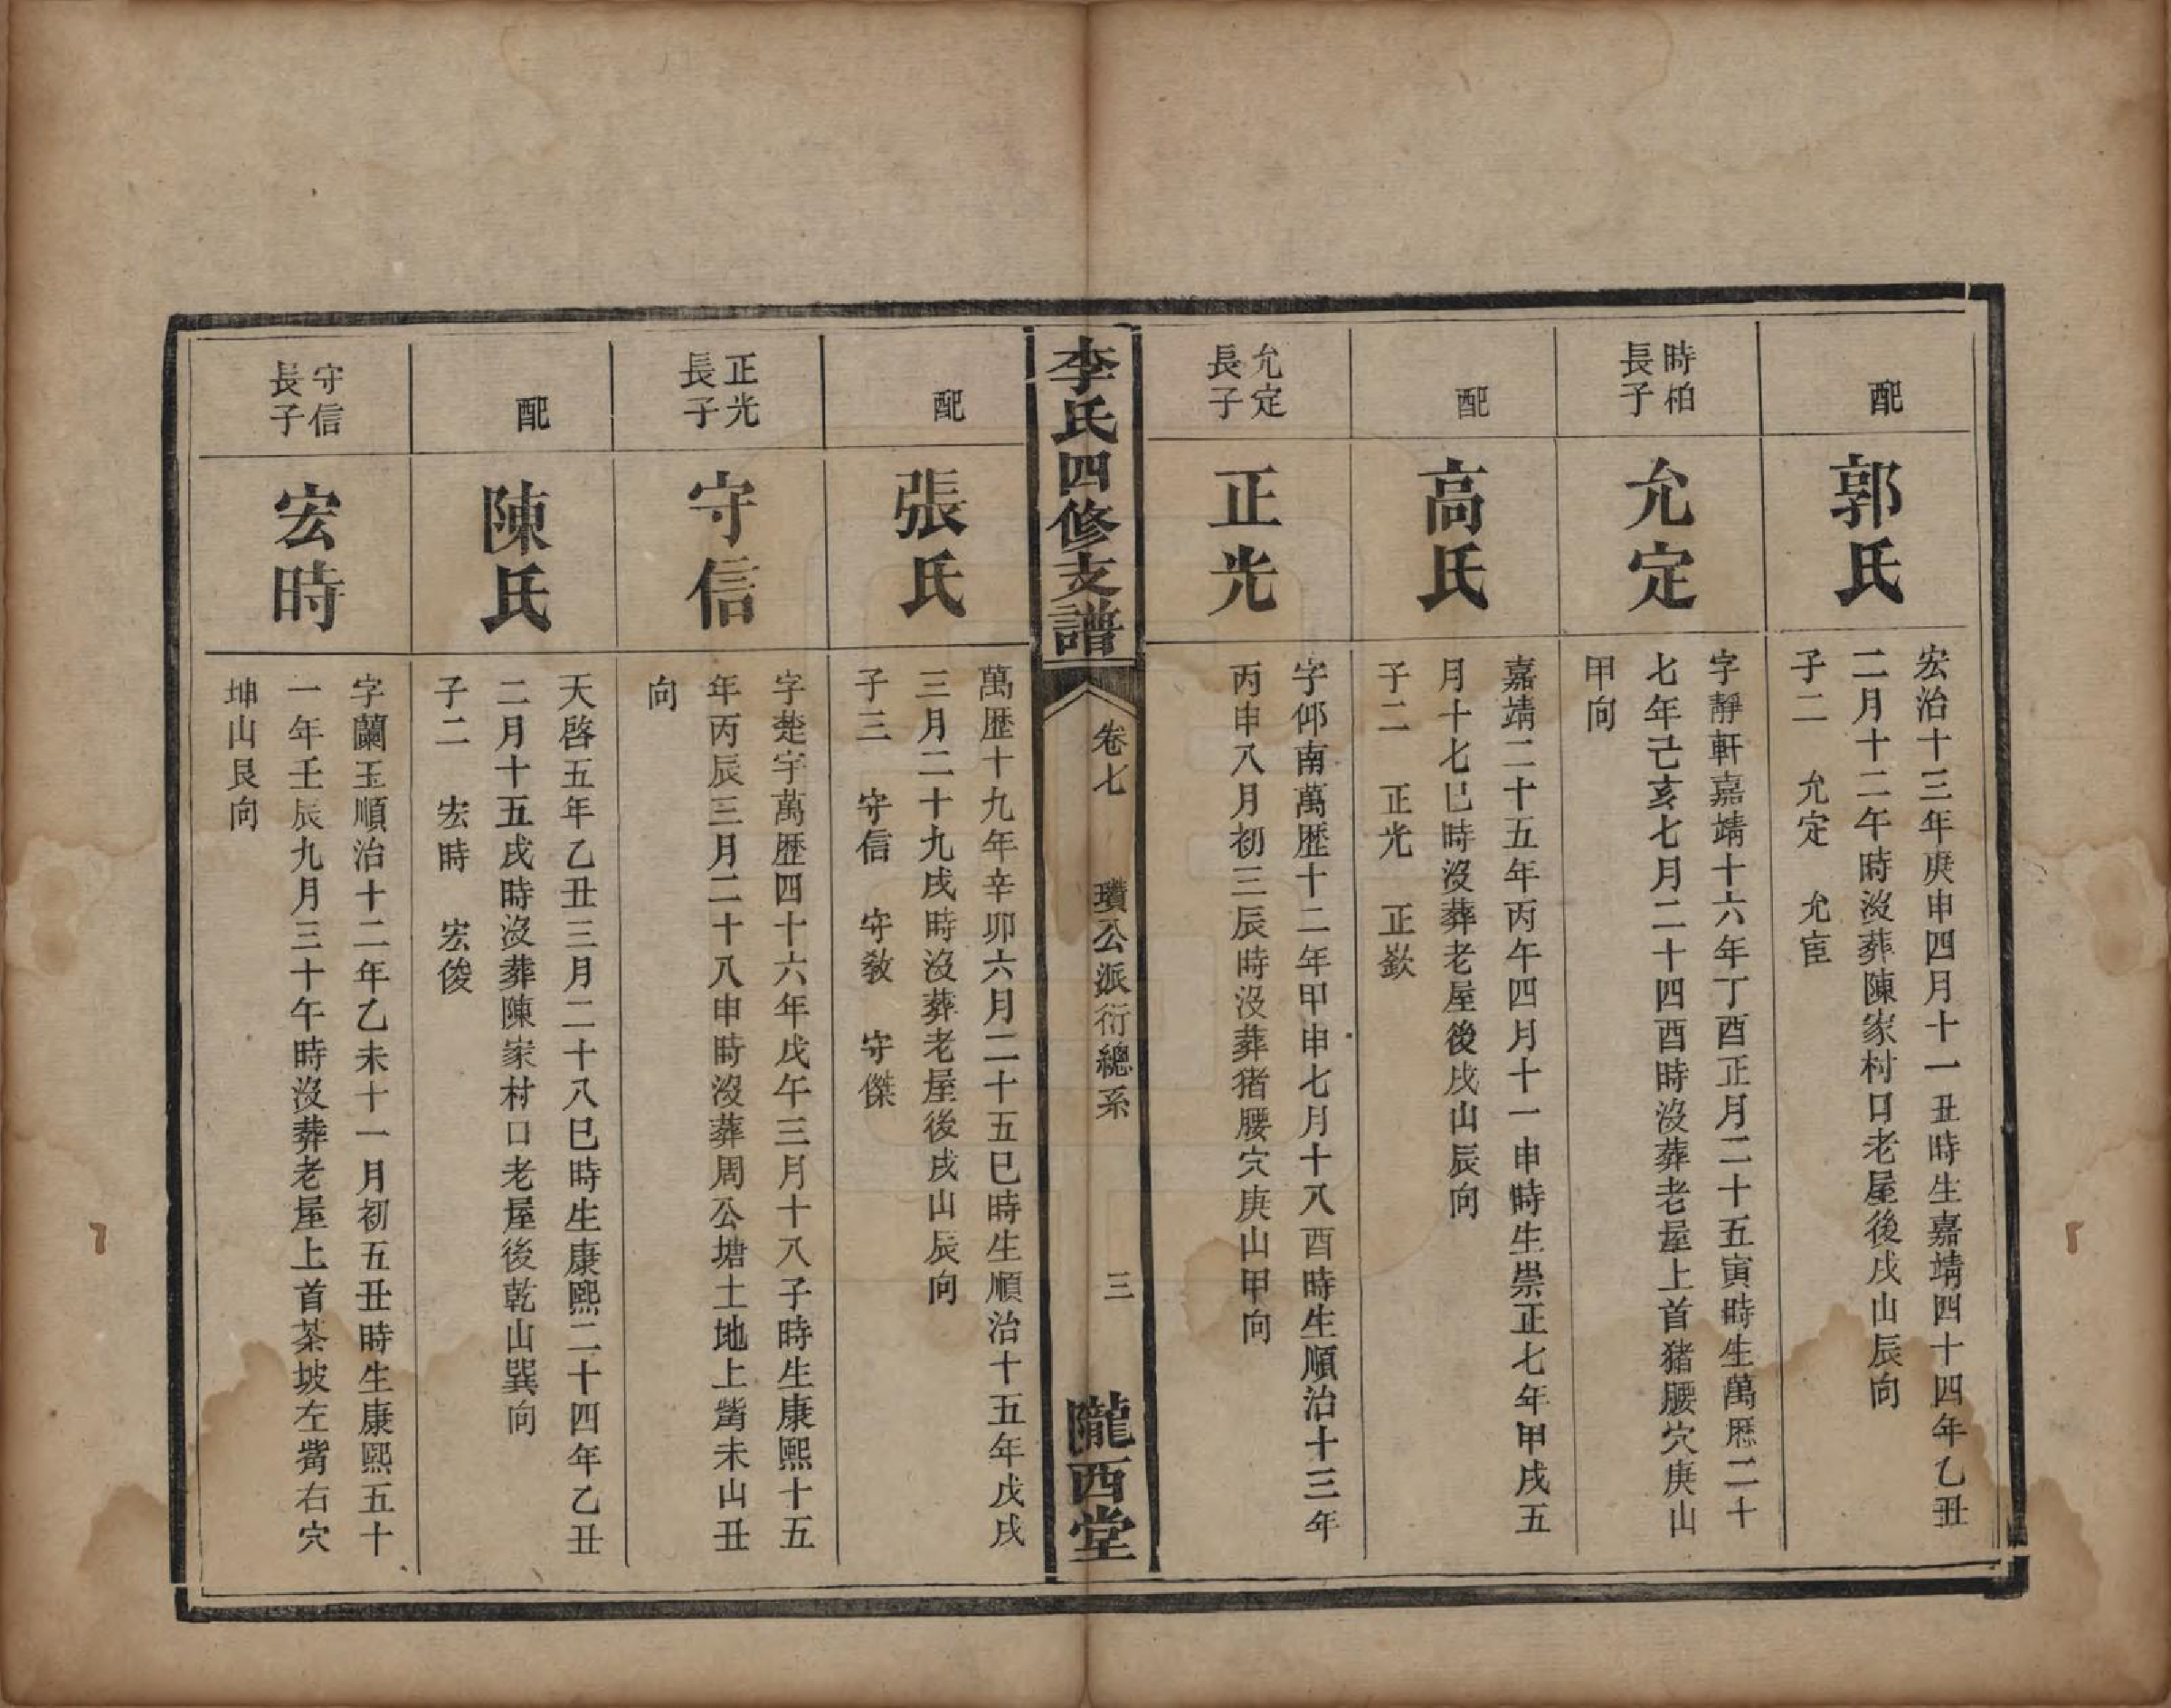 配
郭氏
宏治十三年庚申四月十一丑時生嘉靖四十四年乙丑
二月十二午時沒葬陳家村口老屋後戌山辰向
子二　允定　允宦
時柏
長子
允定
字靜軒嘉靖十六年丁酉正月二十五寅時生萬歷二十
七年己亥七月二十四酉時沒葬老屋上首猪腰穴庚山
甲向
配
高氏
嘉靖二十五年丙午四月十一申時生崇正七年甲戌五
月十七巳時沒葬老屋後戌山辰向
子二　正光　正欽
允定
長子
正光
字仰南萬歷十二年甲申七月十八酉時生順治十三年
丙申八月初三辰時沒葬猪腰穴庚山甲向
李氏四修支譜
卷七　瓚公派衍總系　三
隴西堂
配
張氏
萬歷十九年辛卯六月二十五巳時生順治十五年戊戌
三月二十九戌時沒葬老屋後戌山辰向
子三　守信　守敎　守傑
正光
長子
守信
字楚宇萬歷四十六年戊午三月十八子時生康熙十五
年丙辰三月二十八申時沒葬周公塘土地上觜未山丑
向
配
陳氏
天啓五年乙丑三月二十八巳時生康熙二十四年乙丑
二月十五戌時沒葬陳家村口老屋後乾山巽向
子二　宏時　宏俊
守信
長子
宏時
字蘭玉順治十二年乙未十一月初五丑時生康熙五十
一年壬辰九月三十午時沒葬老屋上首茶坡左觜右穴
坤山艮向